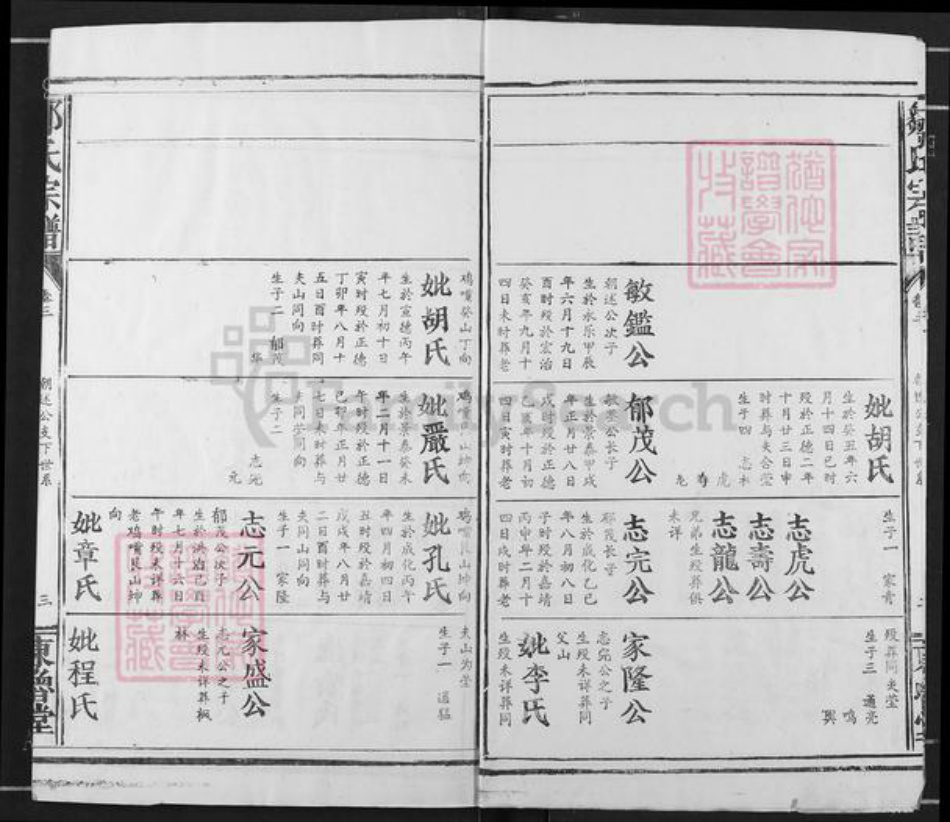 鄒氏宗譜
敏鑑公
朝述公次子
生於永乐甲辰
年六月十九日
酉时殁於宏治
癸亥年九月十
四日未时葬老
鸡嘴癸山丁向
妣胡氏
生於宣德丙午
年七月初十日
寅时殁於正德
丁卯年八月十
五日酉时葬同
夫山同向
生子二 郁茂
华
妣胡氏
生於癸丑年六
月十四日巳时
殁於正德二年
十月廿三日申
时葬与夫合茔
生子四 志永
虎
寿
龙
郁茂公
敏鑑公长子
生於景泰甲戌
年正月廿八日
戌时殁於正德
乙亥年十月初
四日寅时葬老
鸡嘴艮山坤向
妣嚴氏
生於景泰癸未
年二月十一日
午时殁於正德
己卯年正月廿
七日未时葬与
夫同茔同向
生子二 志完
元
生子一 家肯
志虎公
志壽公
志龍公
兄弟生殁葬俱
未详
志完公
郁茂长子
生於成化己巳
年八月初八日
子时殁於嘉靖
丙申年二月十
四日戌时葬老
鸡嘴艮山坤向
妣孔氏
生於成化丙午
年四月初四日
丑时殁於嘉靖
戊戌年八月廿
二日酉时葬与
夫同山同向
生子一 家隆
志元公
郁茂公次子
生於洪治己酉
年七月十六日
午时殁未详葬
老鸡嘴艮山坤
向
妣章氏
殁葬同夫茔
生子三 通亮
鸣
興
家隆公
志完公之子
生殁未详葬同
父山
妣李氏
生殁未详葬同
夫山为茔
生子一 通猛
家盛公
志元公之子
生殁未详葬椒
林
妣程氏
鄒氏宗譜
卷三
朝述公支下世系
三
東魯堂